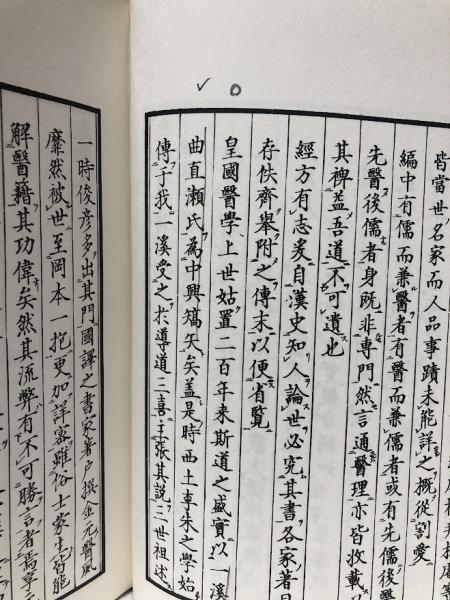 皆當世名家而人品事蹟未能詳之概從割愛
編中有儒而兼醫者有醫而兼儒者或有先儒後
先醫後儒者身既非專門然言通醫理亦皆收載
其裨益吾道不可遺也
經方有志爰自漢史知人論世必究其書各家著
存佚齊舉附之傳末以便省覽
皇國醫學上世姑置二百年来斯道之盛實以一溪
曲直瀬氏為中興嚆矢矣盖是時西土李朱之學始
傳于我一溪受之於導道三喜主張其説二世祖述
一時俊彦多出其門國譯之書家著戸撰金元醫風
靡然被世至岡本一抱更加詳密雖俗士蒙生皆能
解醫籍其功偉矣然其流弊有不可勝言者焉享元